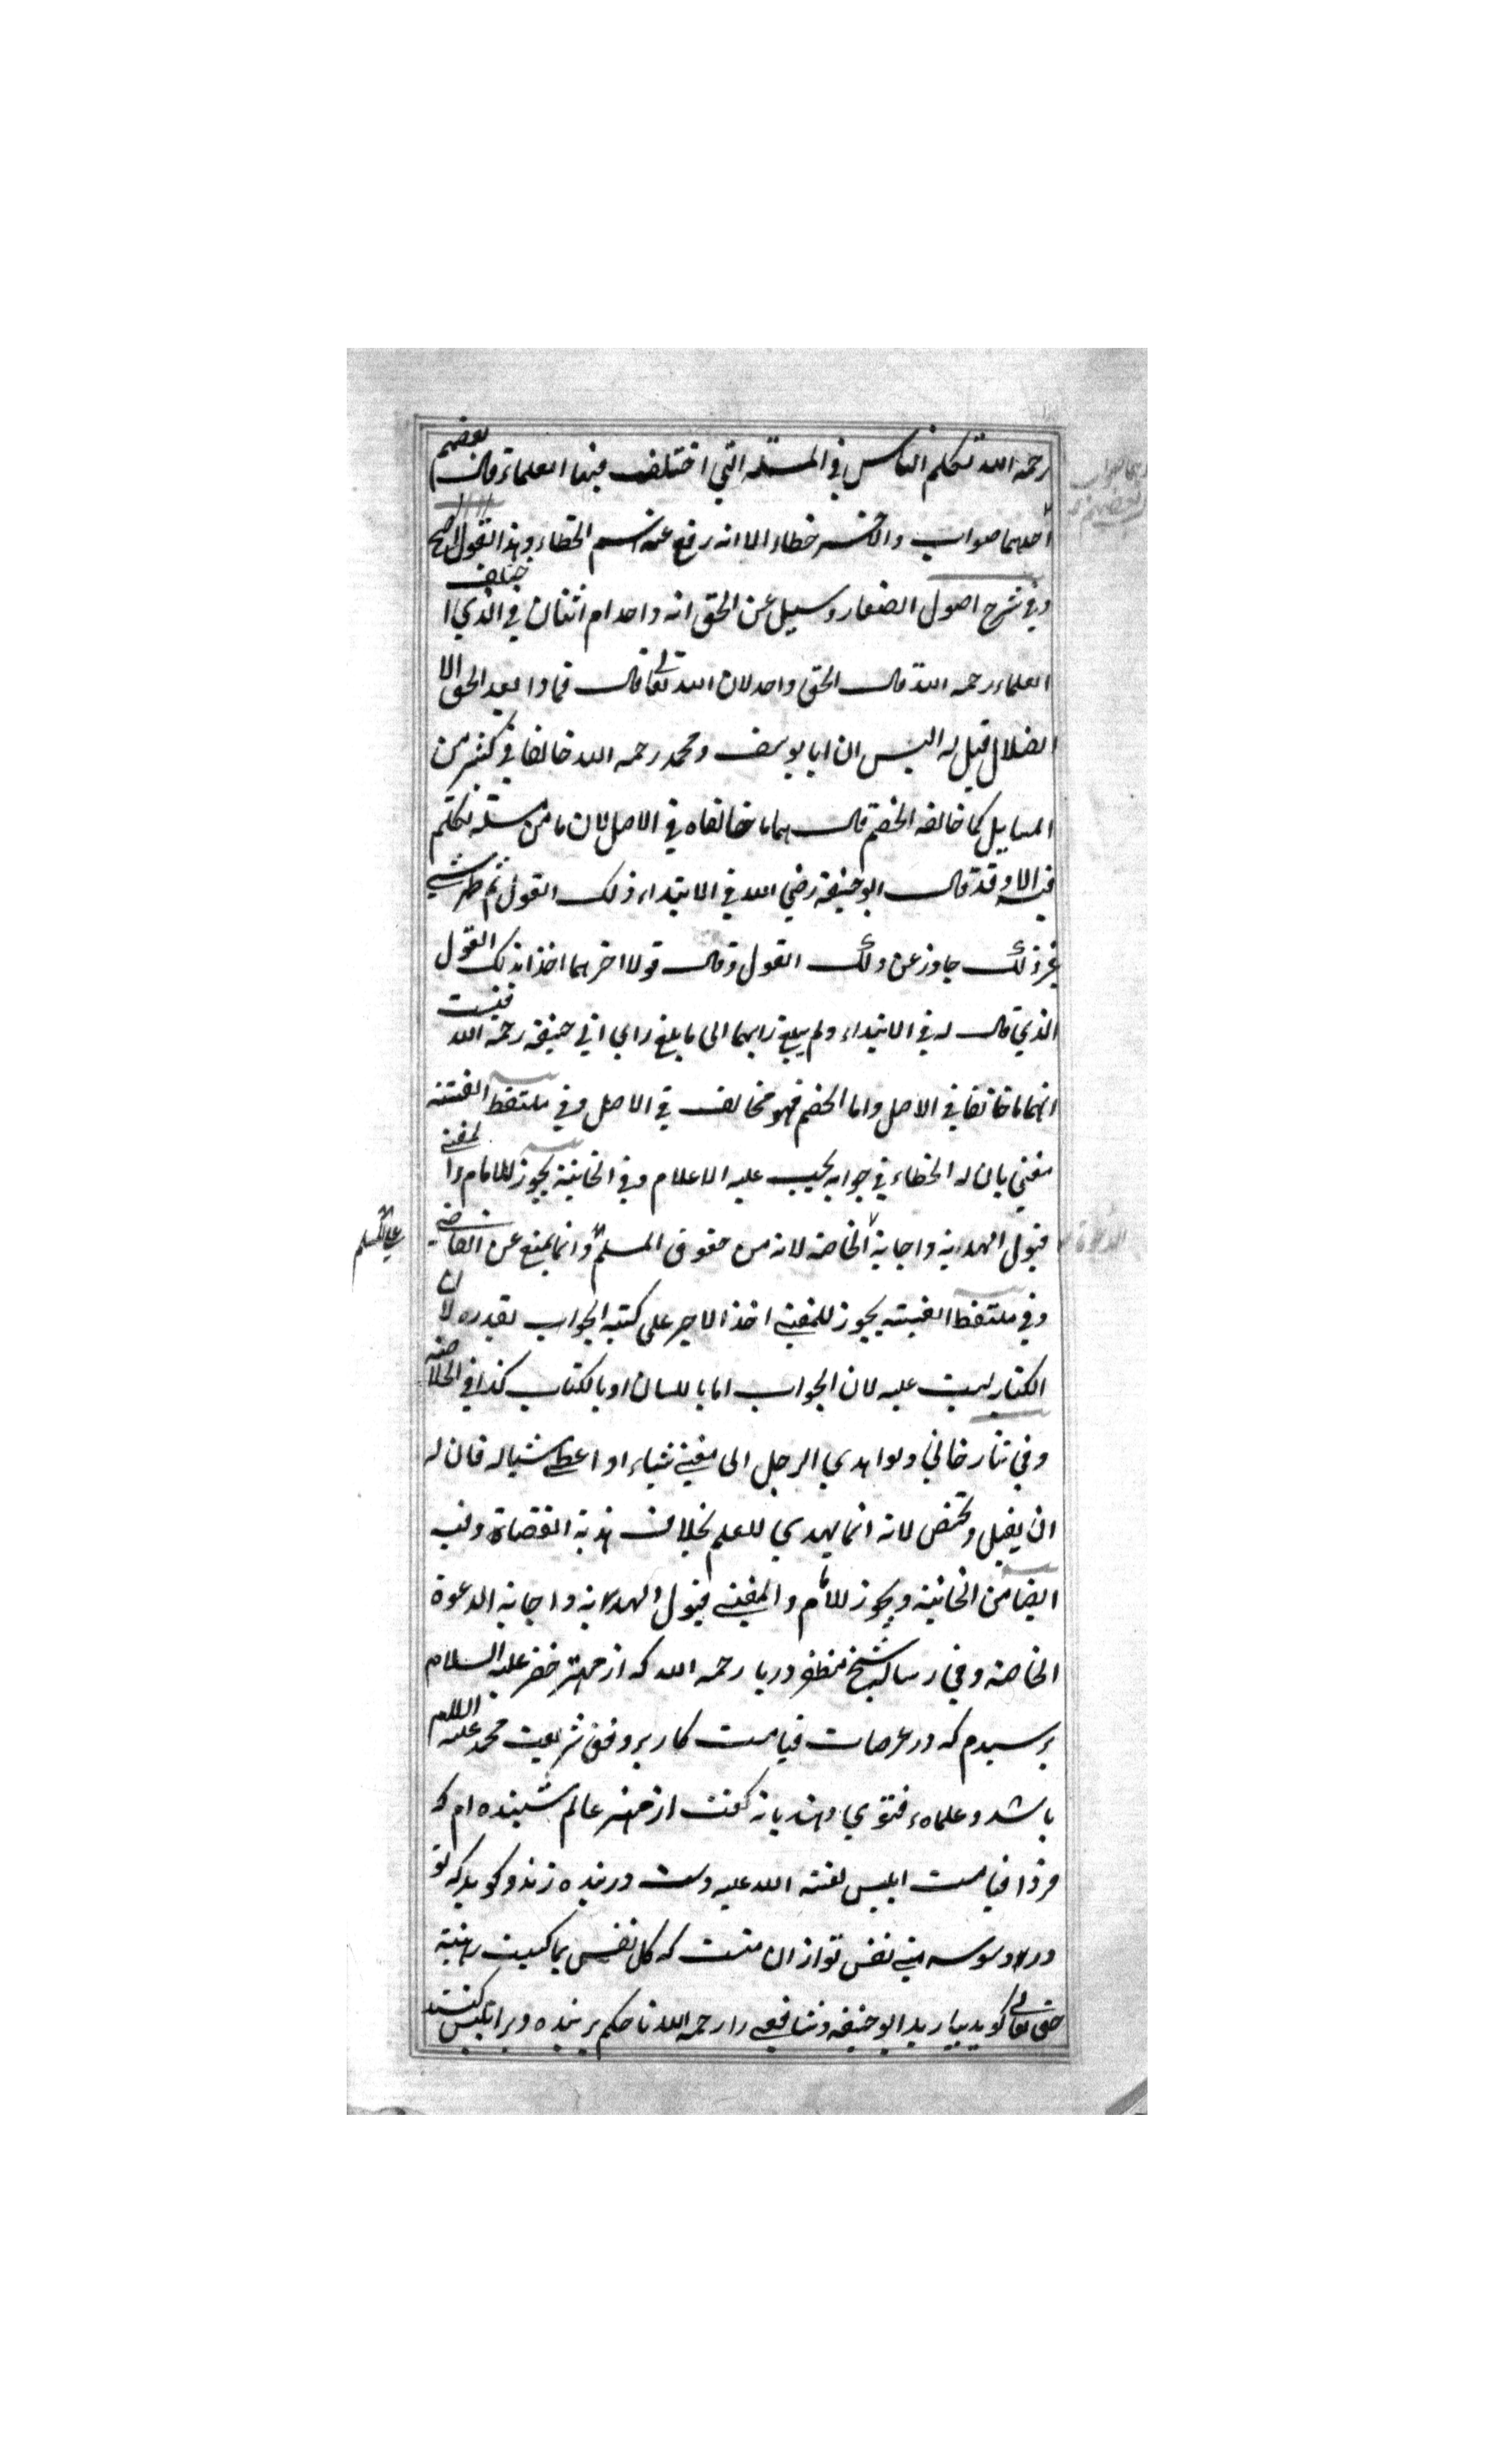 رحمه الله تكلم الناس في المسئلة التي اختلف فيها العلماء قال بعضهم
احدهما صواب والاخر خطاء الا انه رفع عنه اسم الخطاء وهذا القول اصح
وفي شرح اصول الصفار وسيل عن الحق انه واحد ام اثنان في الذي اختلف
العلماء رحمه الله قال الحق واحد لان الله تعالى قال فماذا بعد الحق الا
الضلال قيل له اليس ان ابا يوسف ومحمد رحمه الله خالفا في كثير من
المسايل كما خالفه الخصم قال هما ما خالفاه في الاصل لان ما من مسئلة تكلم
فيه الا وقد قال ابو حنيفة رضي الله في الابتداء ذلك القول ثم ظهر شي
غير ذلك جاوز عن ذلك القول وقال قولا اخر هما اخذا بذلك القول
الذي قال له في الابتداء ولم يبلغ رايهما الى ما بلغ راي ابي حنيفة رحمة الله فثبت
انهما ما خالفا في الاصل واما الخصم فهو مخالف في الاصل وفي ملتقط الفتنه
مفتي بان له الخطاء في جوابه يجب عليه الاعلام وفي الخانية يجوز للامام والمفتي
قبول الهداية واجابة الخاصة لانه من حقوق المسلم وانما يمنع عن القاضي
على المسلم
وفي ملتقط الفيته يجوز للمفتي اخذ الاجر على كتبه الجواب بقدره لان
الكتاب ليست عليه لان الجواب اما باللسان او بالكتاب كذا في الخلاصة
وفي تتارخاني ولو اهدي الرجل الى مفتي شياء او اعطي شيا له فان له
ان يقبل ويختص لانه انما يهدي للعلم بخلاف هدية القضاة وفيه
ايضا من الخانية ويجوز للامام والمفتي قبول الهداية واجابة الدعوة
الخاصة وفي رساله شيخ مظفر دريا رحمه الله كه از مهتر خضر عليه السلام
پرسيدم كه در عرصات قيامت كار بر وفق شريعت محمد عليه السلام
باشد و علماء فتوي دهند يا نه گفت از مهتر عالم شنيده ام كه
فردا قيامت ابليس لعنته الله عليه دست در بنده زند و گويد كه تو
در وسوسه مني نفس تو از ان منست كه كل نفس بما كسبت رهينة
حق تعالى گويد بياريد ابو حنيفه و شافعي را رحمه الله تا حكم بر بنده و بر ابليس كنند